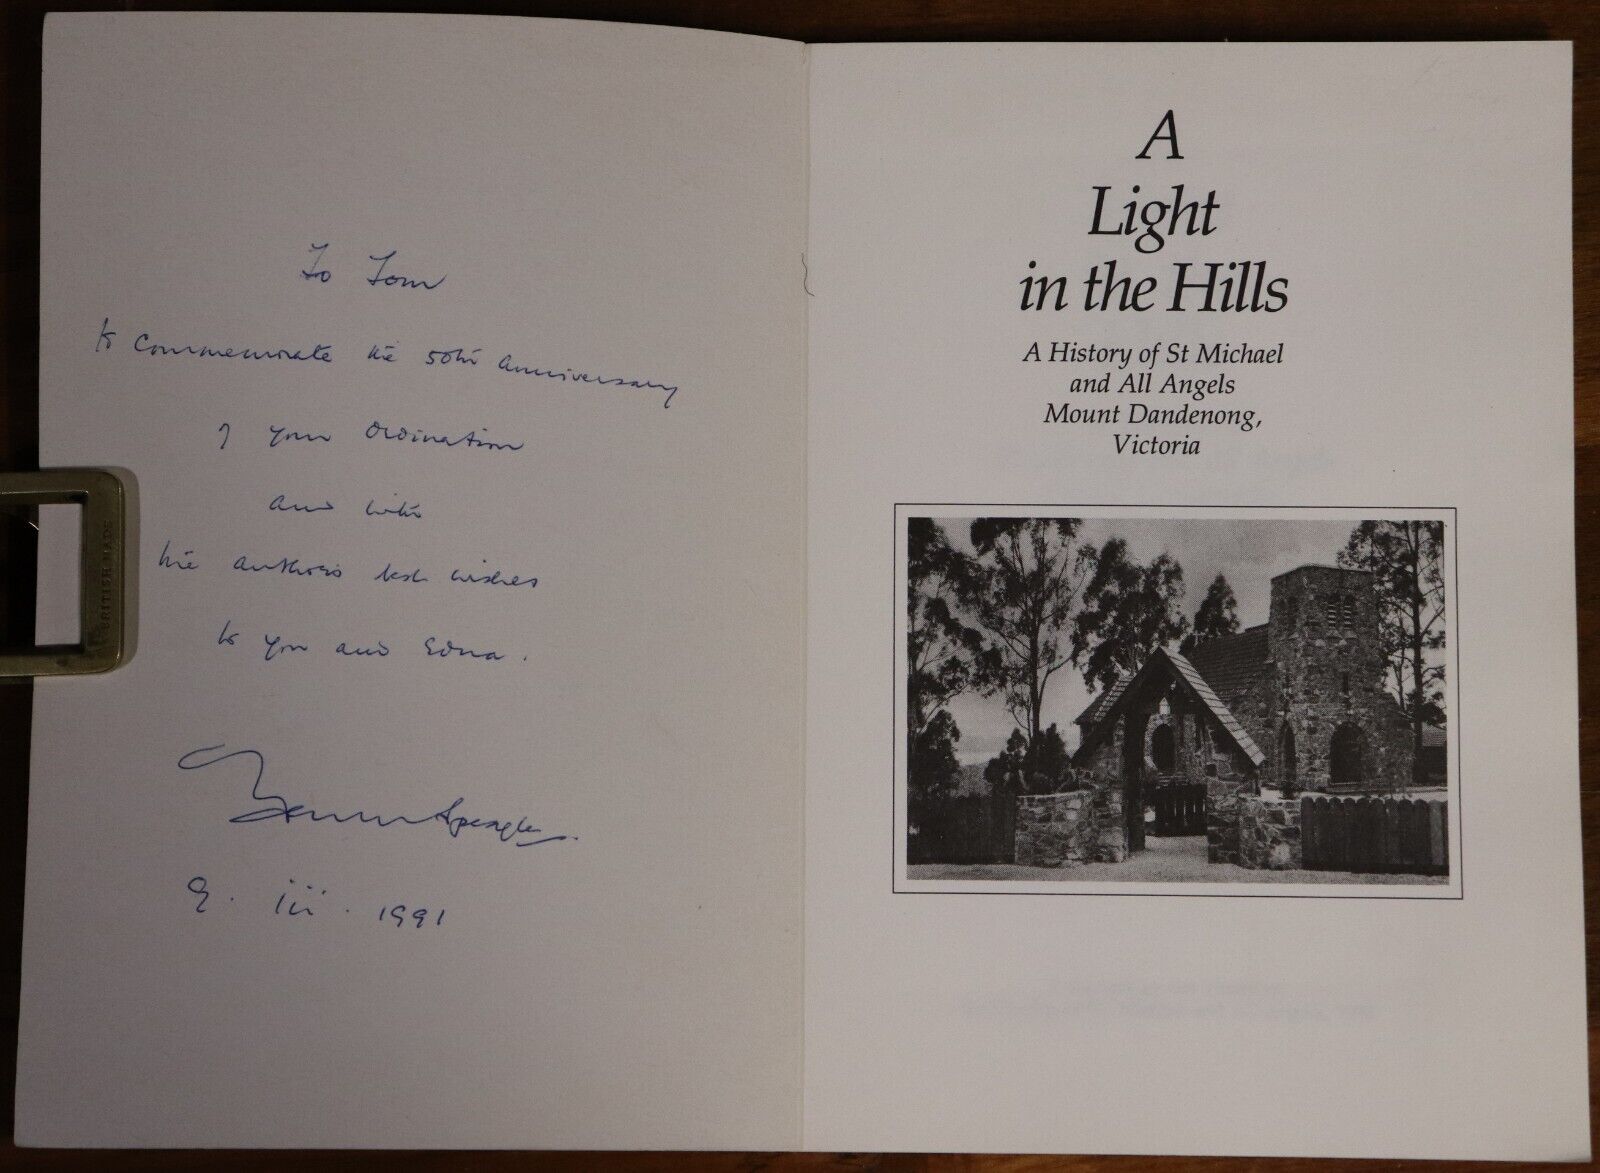 To Tom
to commemorate the 50th anniversary
of your ordination
and with
the author's best wishes
to you and Edna.
9. iii. 1991
BRITISH MADE
A
Light
in the Hills
A History of St Michael
and All Angels
Mount Dandenong,
Victoria